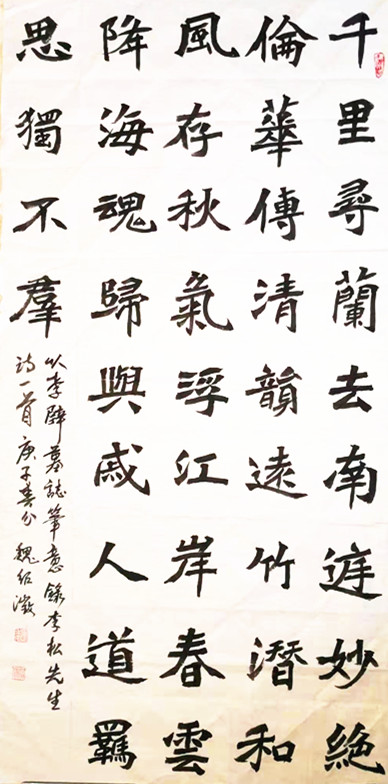 千里尋蘭去南庭妙絶
倫華傳清韻遠竹潛和
風存秋氣浮江岸春雲
降海魂歸與戚人道羈
思獨不羣
以李壁墓誌筆意錄李松先生
诗一首 庚子春分 魏